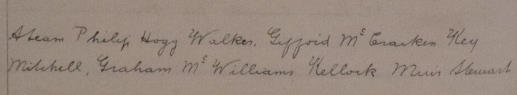 A team Philip Hogg Walker. Giffoid Mc Cracken Key
Mitchell, Graham Mc Williams Kellock Muir Stewart